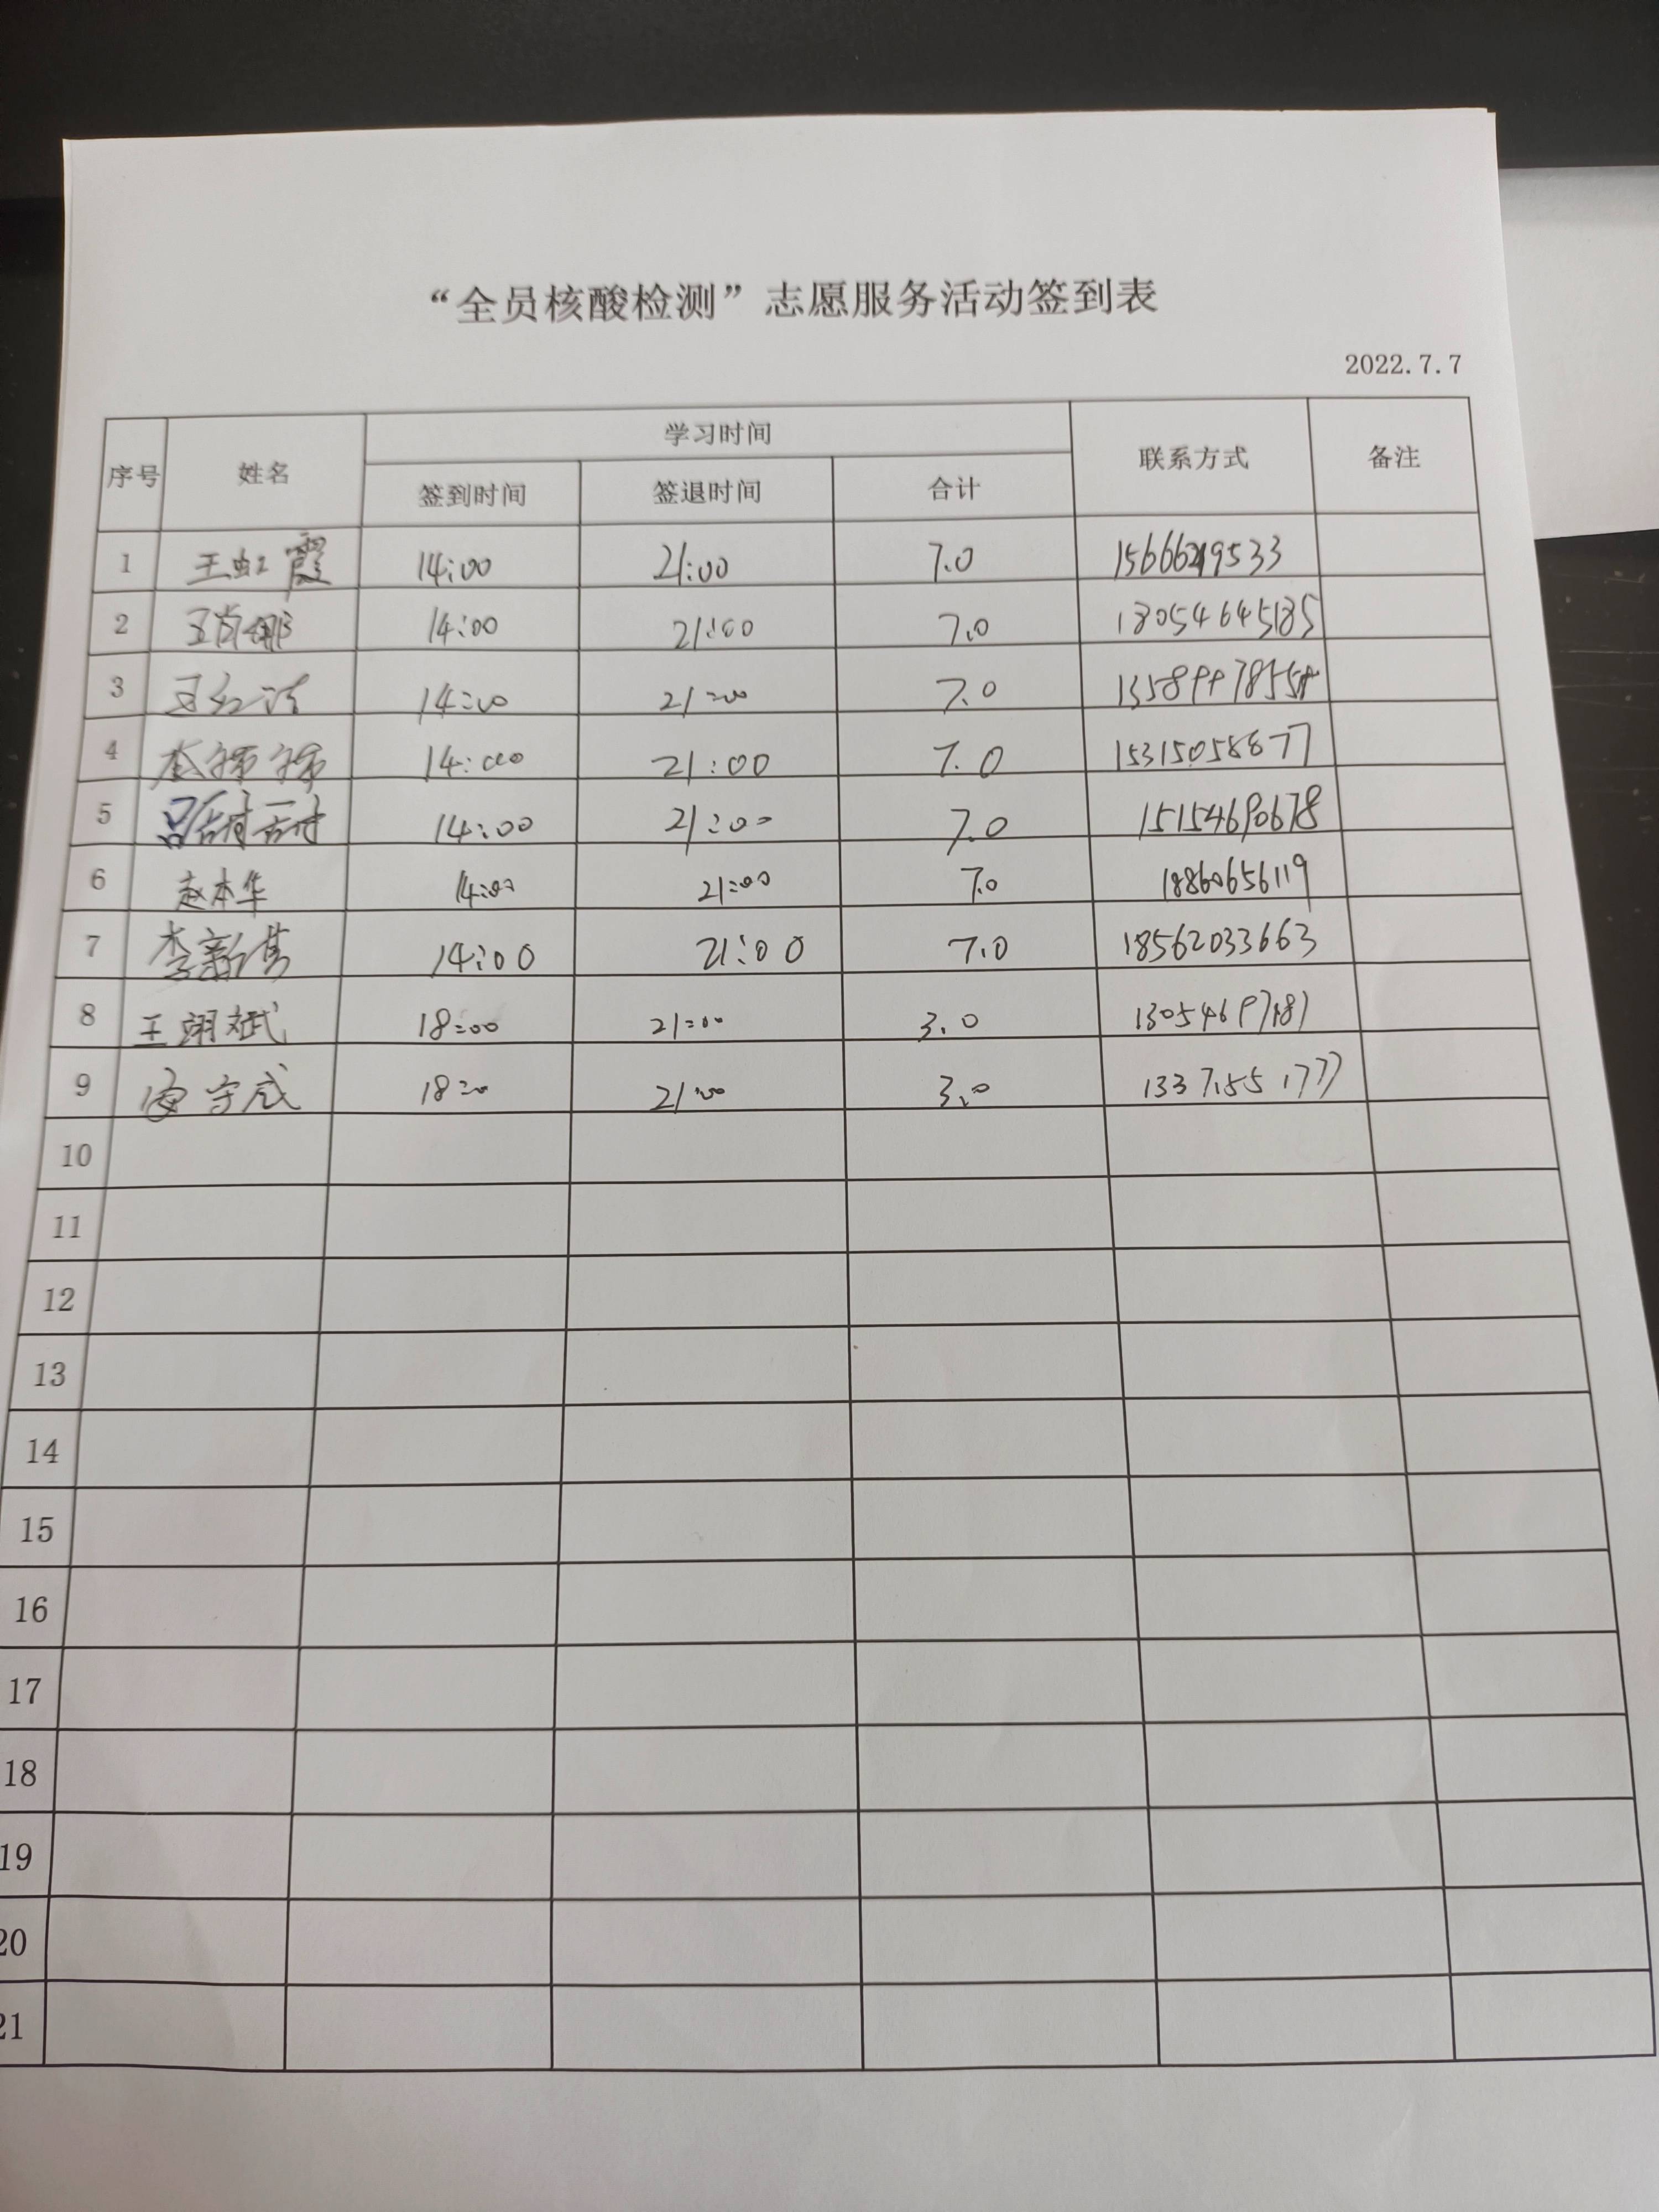 “全员核酸检测”志愿服务活动签到表
2022.7.7
序号 姓名 学习时间 联系方式 备注
签到时间 签退时间 合计
1 王虹霞 14:00 21:00 7.0 15666219533
2 王肖娜 14:00 21:00 7.0 18054645185
3 14:00 21:00 7.0
4 李娣娣 14:00 21:00 7.0 15315058877
5 14:00 21:00 7.0
6 赵本华 14:00 21:00 7.0 18860656119
7 李新 14:00 21:00 7.0 18562033663
8 王翊斌 18:00 21:00 3.0
9 18:00 21:00 3.0 13371551777
10
11
12
13
14
15
16
17
18
19
20
21